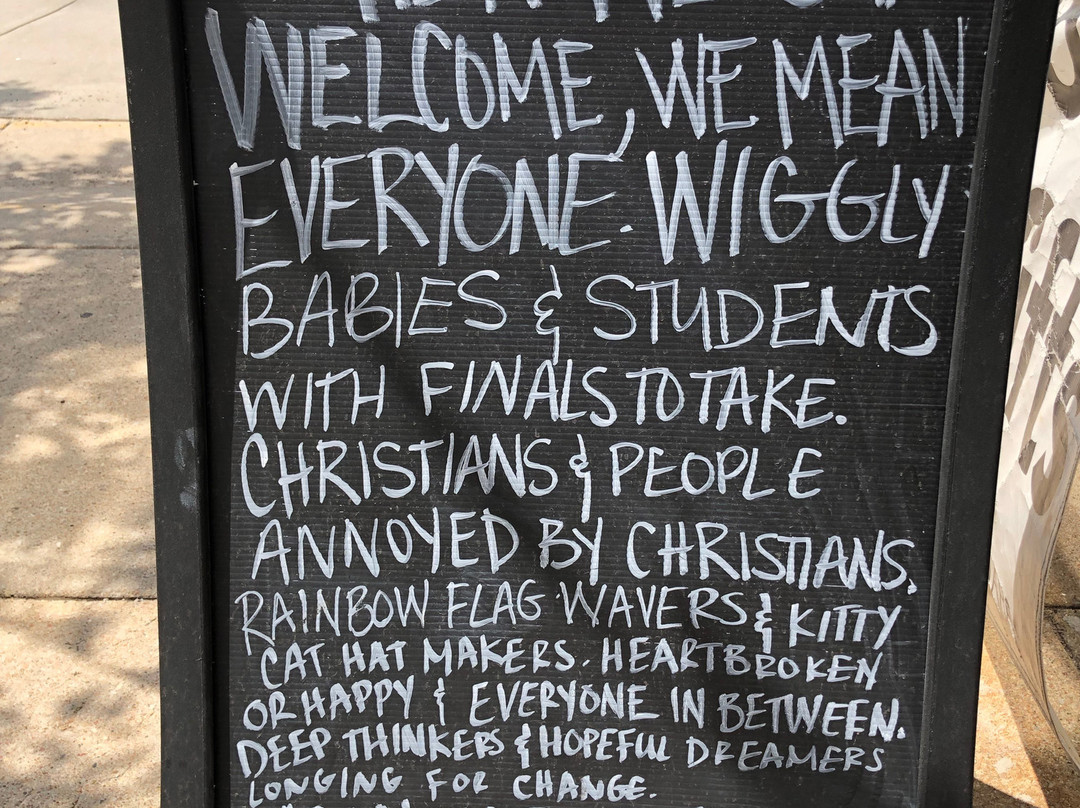 WELCOME, WE MEAN
EVERYONE. WIGGLY
BABIES & STUDENTS
WITH FINALS TO TAKE.
CHRISTIANS & PEOPLE
ANNOYED BY CHRISTIANS.
RAINBOW FLAG WAVERS & KITTY
CAT HAT MAKERS. HEARTBROKEN
OR HAPPY & EVERYONE IN BETWEEN.
DEEP THINKERS & HOPEFUL DREAMERS
LONGING FOR CHANGE.